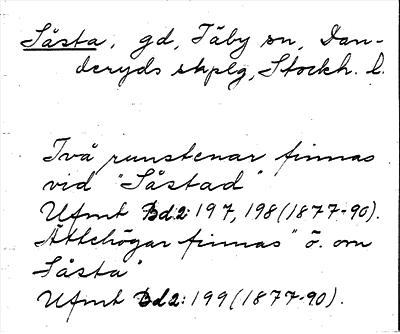 Såsta, gd, Täby sn, Dan-
deryds skplg, Stockh. l.
Två runstenar finnas
vid "Såstad"
Ufmt Bd.2: 197, 198 (1877-90).
Ättehögar finnas "ö. om
Såsta"
Ufmt Bd 2: 199 (1877-90).